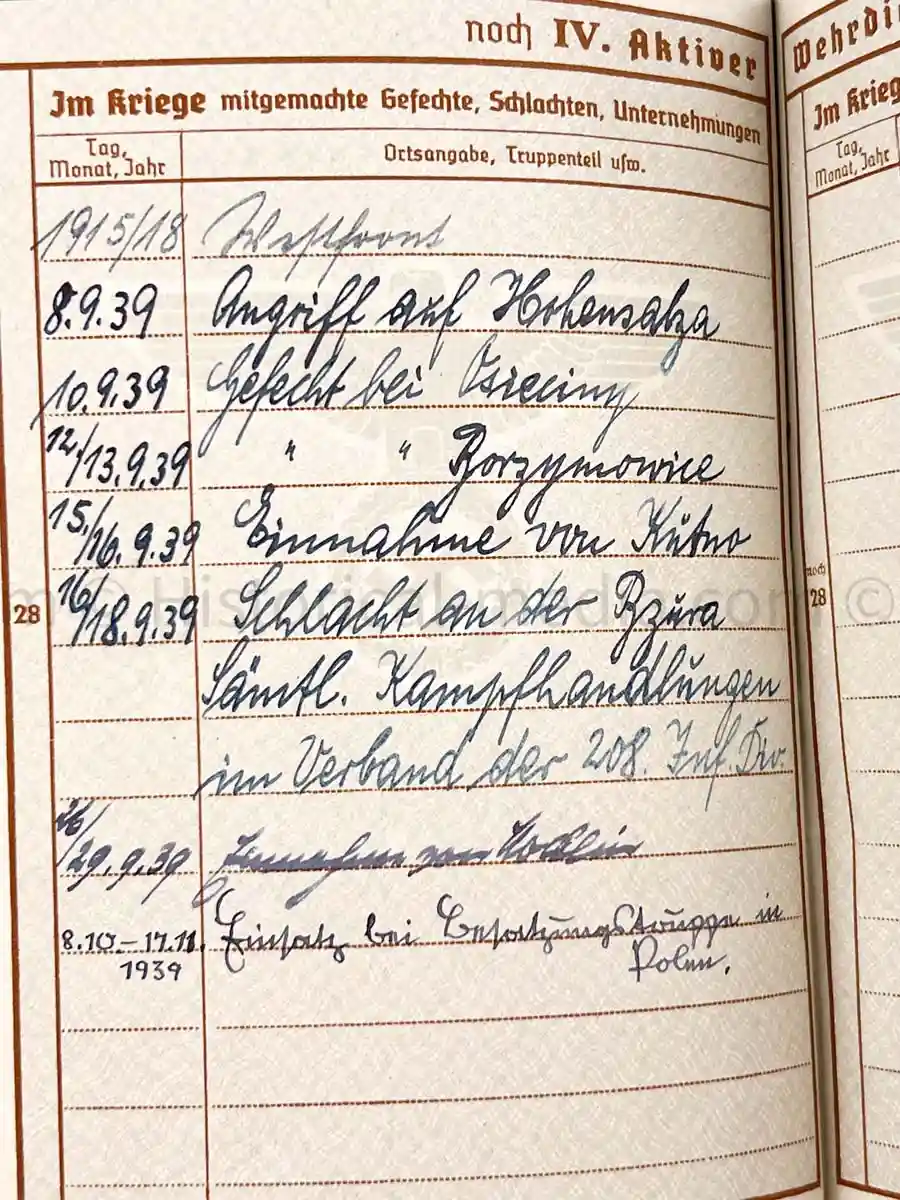 noch IV. Aktiver
Im Kriege mitgemachte Gefechte, Schlachten, Unternehmungen
Tag,
Monat, Jahr
Ortsangabe, Truppenteil usw.
1915/18 Westfront
8.9.39 Angriff auf Hohensalza
10.9.39 Gefecht bei Osieciny
12./13.9.39 " " Borzymowice
15./16.9.39 Einnahme von Kutno
16/18.9.39 Schlacht an der Bzura
Sämtl. Kampfhandlungen
im Verband der 208. Inf. Div.
26/29.9.39 Einnahme von Modlin
8.10–17.11. Einsatz bei Besatzungstruppe in
1939 Polen.
28
Wehrdi
Im Krieg
Tag,
Monat, Jahr
noch
28
© Historical-media.com ©